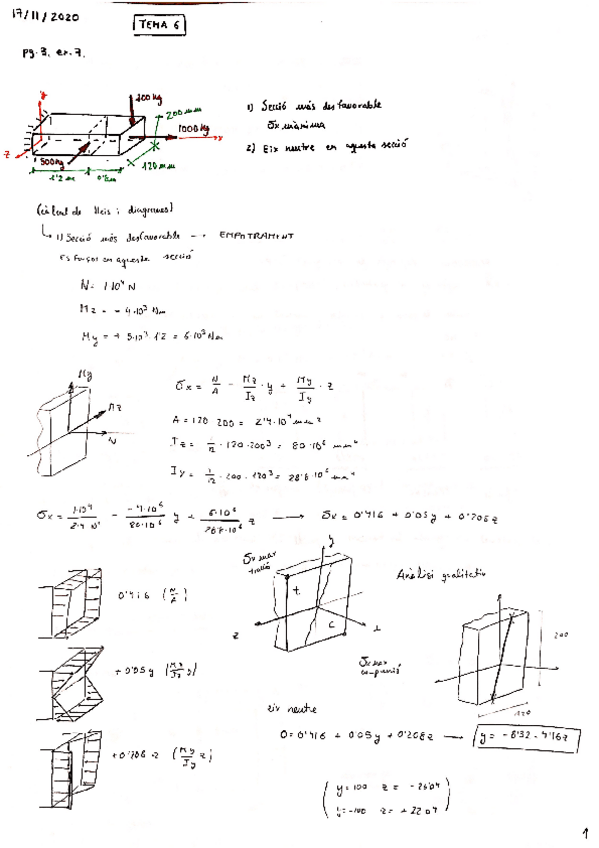 17/11/2020
TEMA 6
pg.3. ex.7.
y
200 mm
1000 Kg
x
z
500 Kg
120 mm
1'2 m
1) Secció més desfavorable
σx màxima
2) Eix neutre en aquesta secció
(càlcul de lleis i diagrames)
1) Secció més desfavorable → EMPOTRAMENT
Esforços en aquesta secció
N = 1·10⁴ N
Mz = - 4·10³ Nm
My = + 5·10³ · 1'2 = 6·10³ Nm
My
Mz
N
σx = N/A - Mz/Iz · y + My/Iy · z
A = 120 · 200 = 2'4·10⁴ mm²
Iz = 1/12 · 120 · 200³ = 80·10⁶ mm⁴
Iy = 1/12 · 200 · 120³ = 28'8·10⁶ mm⁴
→ σx = 0'416 + 0'05y + 0'208z
0'416 (N/A)
+ 0'05 y (Mz/Iz y)
+ 0'208 z (My/Iy z)
σx max
tracció
y
t
c
z
σx max
compressió
Anàlisi qualitativ
200
120
eix neutre
0 = 0'416 + 0'05y + 0'208z → y = - 8'32 - 4'16z
y = 100 z = - 26'04
y = -100 z = + 22'04
1